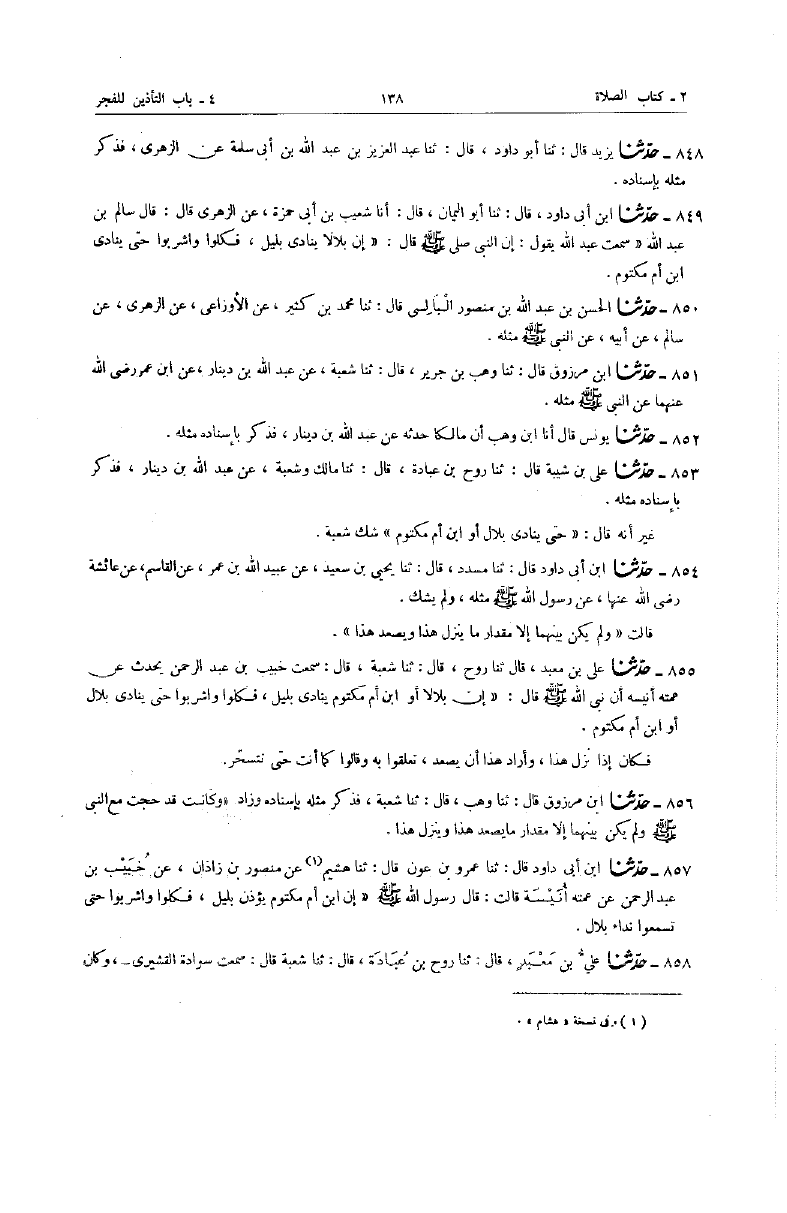 ٢ - كتاب الصلاة ١٣٨ ٤ - باب التأذين للفجر
٨٤٨ - حدّثنا يزيد قال : ثنا أبو داود ، قال : ثنا عبد العزيز بن عبد الله بن أبى سلمة عن الزهرى ، فذكر
مثله بإسناده .
٨٤٩ - حدّثنا ابن أبى داود ، قال : ثنا أبو اليمان ، قال : أنا شعيب بن أبى حمزة ، عن الزهرى قال : قال سالم بن
عبد الله « سمعت عبد الله يقول : إن النبى صلى ﷺ قال : « إن بلالا ينادى بليل ، فكلوا واشربوا حتى ينادى
ابن أم مكتوم .
٨٥٠ - حدّثنا الحسن بن عبد الله بن منصور الْبَالِسى قال : ثنا محمد بن كثير ، عن الأوزاعى ، عن الزهرى ، عن
سالم ، عن أبيه ، عن النبى ﷺ مثله .
٨٥١ - حدّثنا ابن مرزوق قال : ثنا وهب بن جرير ، قال : ثنا شعبة ، عن عبد الله بن دينار ، عن ابن عمر رضى الله
عنهما عن النبى ﷺ مثله .
٨٥٢ - حدّثنا يونس قال أنا ابن وهب أن مالكا حدثه عن عبد الله بن دينار ، فذكر بإسناده مثله .
٨٥٣ - حدّثنا على بن شيبة قال : ثنا روح بن عبادة ، قال : ثنا مالك وشعبة ، عن عبد الله بن دينار ، فذكر
بإسناده مثله .
غير أنه قال : « حتى ينادى بلال أو ابن أم مكتوم » شك شعبة .
٨٥٤ - حدّثنا ابن أبى داود قال : ثنا مسدد ، قال : ثنا يحيى بن سعيد ، عن عبيد الله بن عمر ، عن القاسم، عن عائشة
رضى الله عنها ، عن رسول الله ﷺ مثله ، ولم يشك .
قالت « ولم يكن بينهما إلا مقدار ما ينزل هذا ويصعد هذا » .
٨٥٥ - حدّثنا على بن معبد ، قال ثنا روح ، قال : ثنا شعبة ، قال : سمعت خبيب بن عبد الرحمن يحدث عن
عمته أنيسه أن نبى الله ﷺ قال : « إن بلالا أو ابن أم مكتوم ينادى بليل ، فكلوا واشربوا حتى ينادى بلال
أو ابن أم مكتوم .
فكان إذا نزل هذا ، وأراد هذا أن يصعد ، تعلقوا به وقالوا كما أنت حتى نتسحّر.
٨٥٦ - حدّثنا ابن مرزوق قال : ثنا وهب ، قال : ثنا شعبة ، فذكر مثله بإسناده وزاد «وكانت قد حجت مع النبى
ﷺ ولم يكن بينهما إلا مقدار مايصعد هذا وينزل هذا .
٨٥٧ - حدّثنا ابن أبى داود قال : ثنا عمرو بن عون قال : ثنا هشيم(١) عن منصور بن زاذان ، عن خُبَيْب بن
عبد الرحمن عن عمته أُنَيْسَة قالت : قال رسول الله ﷺ « إن ابن أم مكتوم يؤذن بليل ، فكلوا واشربوا حتى
تسمعوا نداء بلال .
٨٥٨ - حدّثنا علىّ بن مَعْبَدٍ ، قال : ثنا روح بن عُبَادَة ، قال : ثنا شعبة قال : سمعت سوادة القشيرى - ، وكان
( ١ ) وفى نسخة « هشام » .